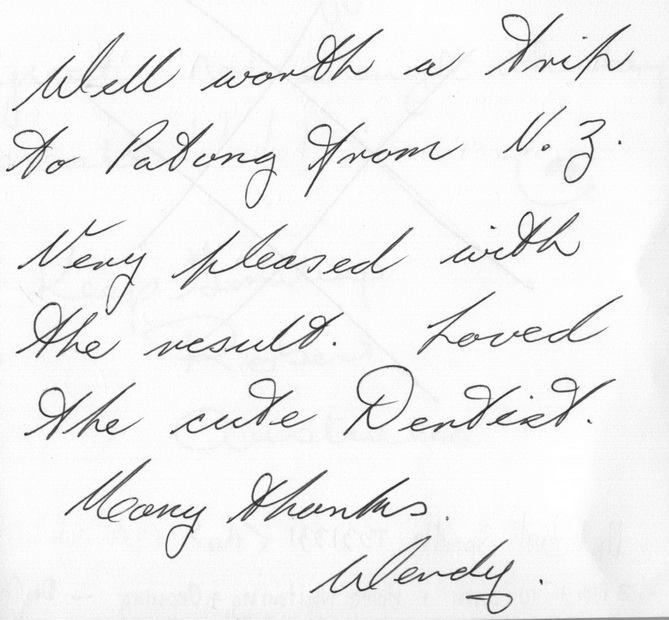 Well worth a trip
to Patong from N.Z.
Very pleased with
the result. Loved
the cute Dentist.
Many thanks.
Wendy.